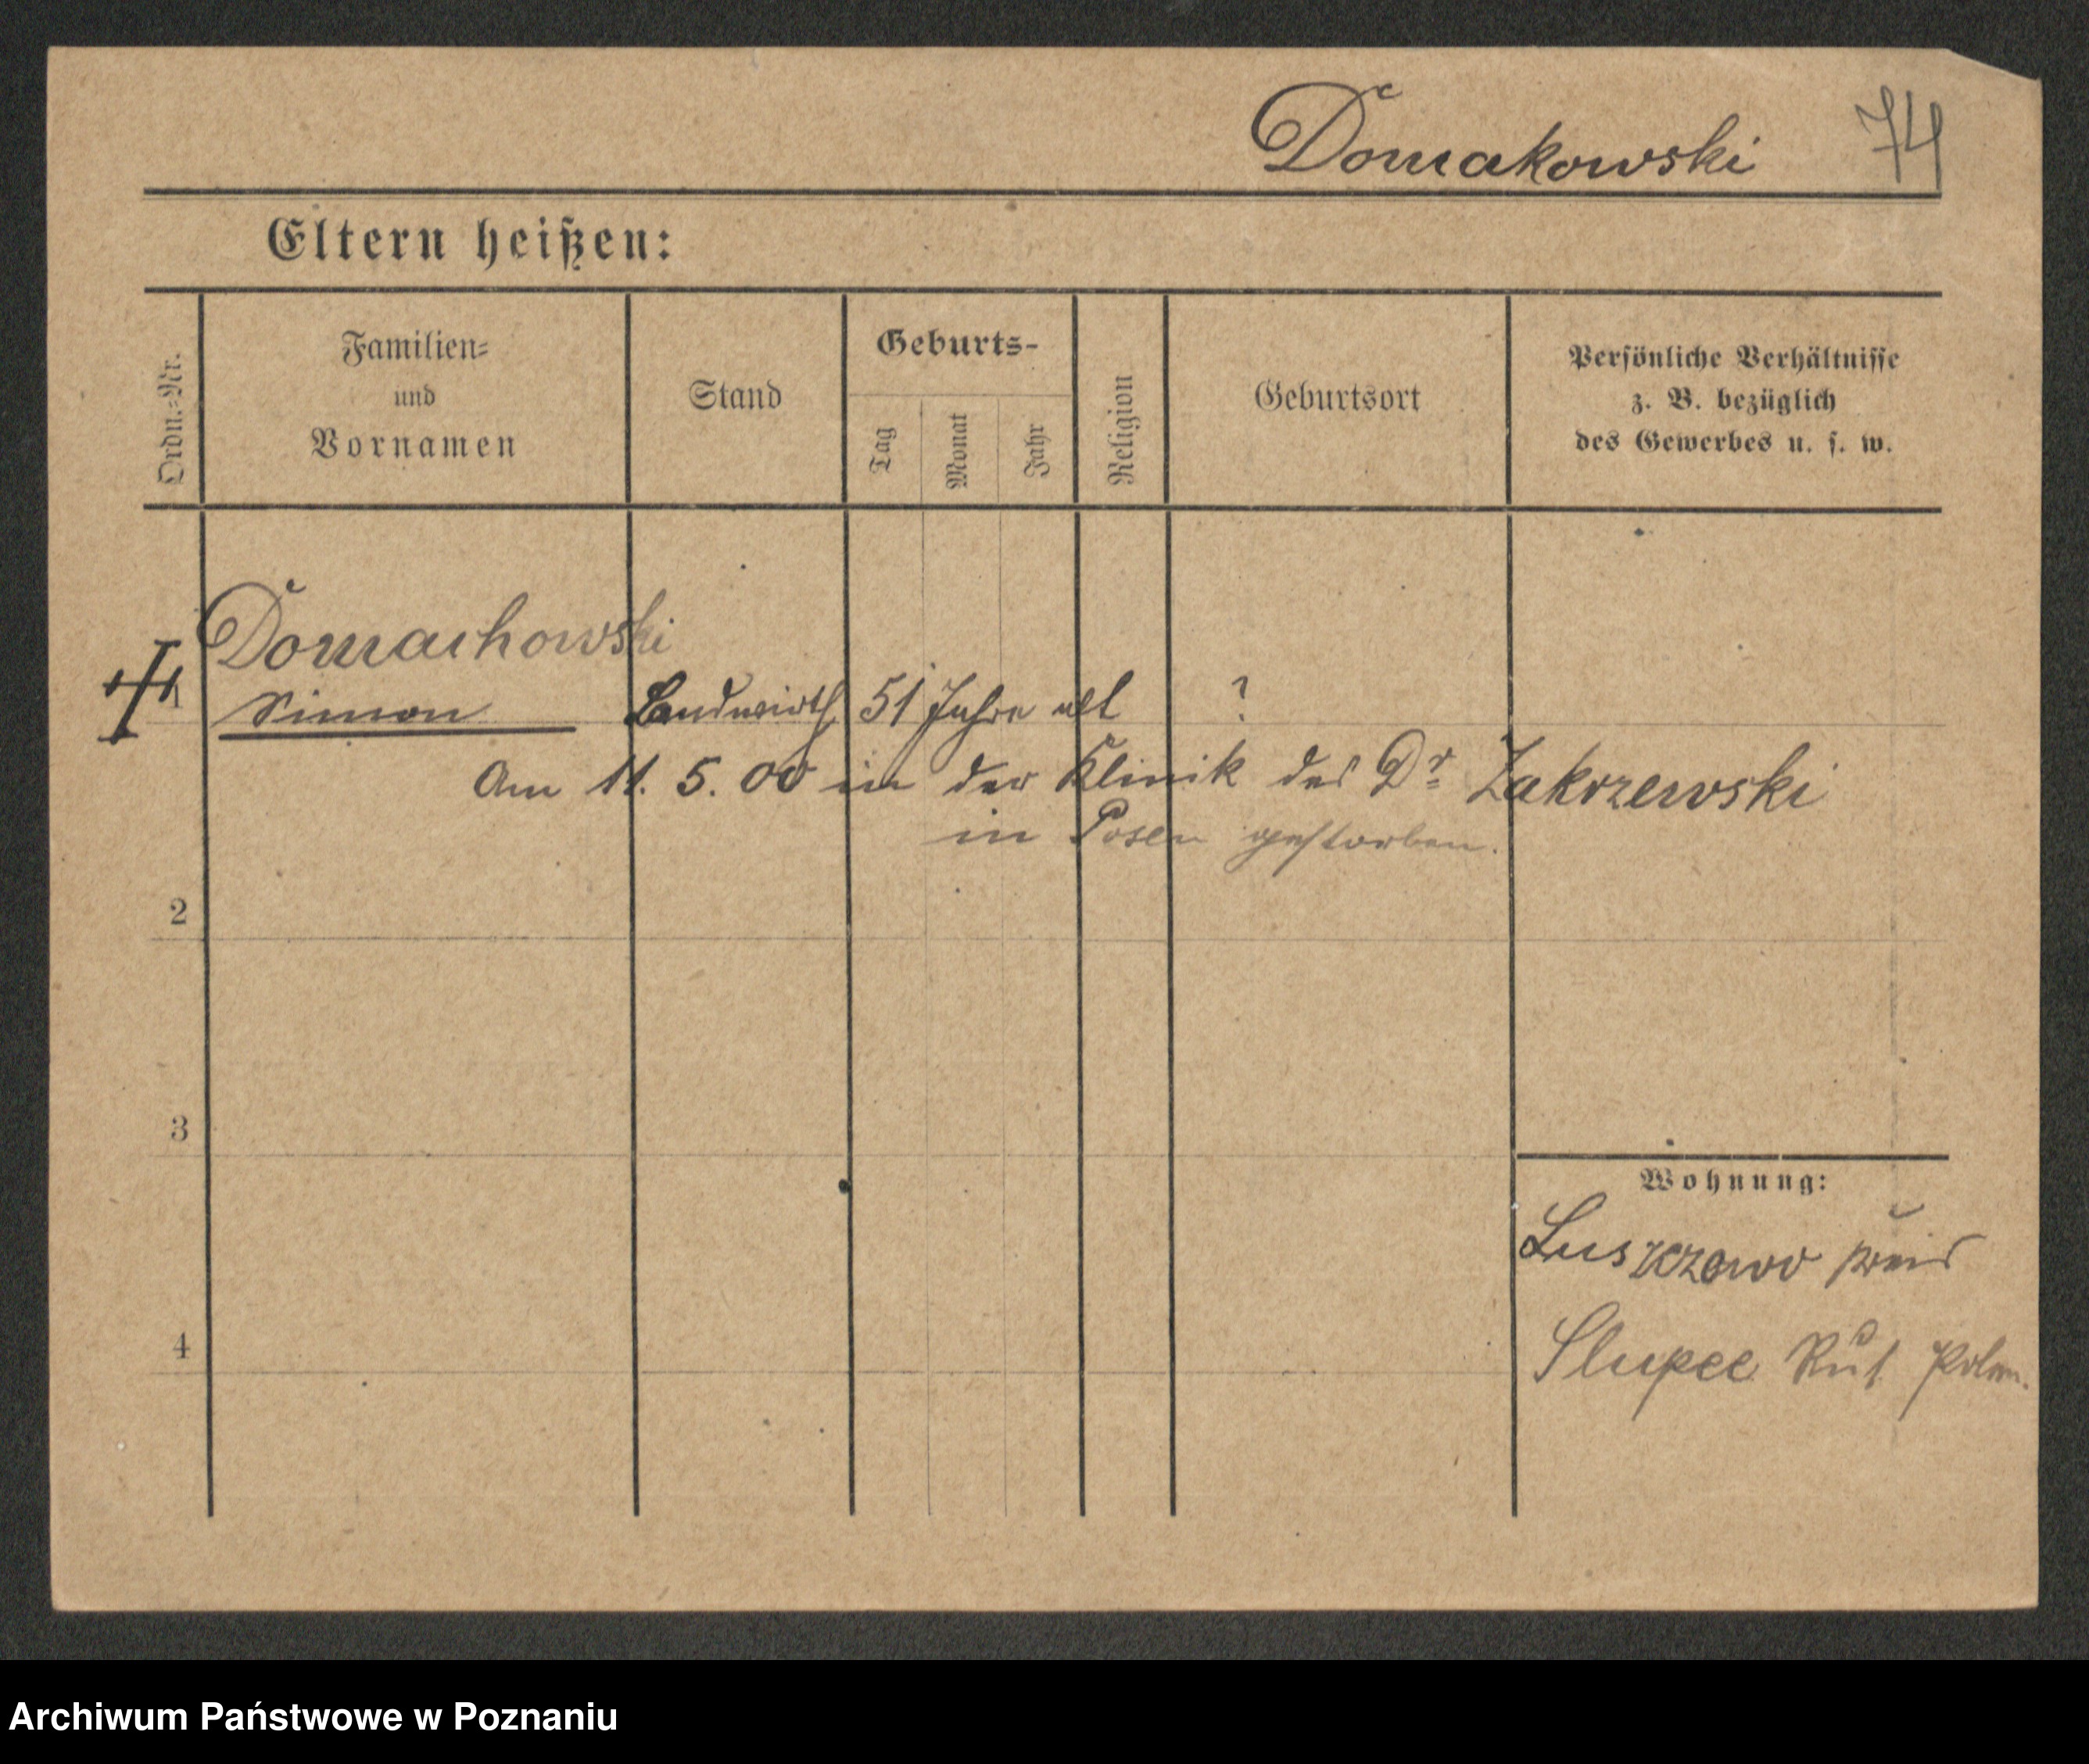 Domakowski 74
Eltern heißen:
Ordn.-Nr.
Familien-
und
Vornamen
Stand
Geburts-
Tag
Monat
Jahr
Religion
Geburtsort
Persönliche Verhältnisse
z. B. bezüglich
des Gewerbes u. s. w.
Domachowski
1 Simon Landwirth 51 Jahre alt ?
Am 11. 5. 00 in der Klinik des Dr Zakrzewski
in Posen gestorben.
2
3
Wohnung:
Luszczewo Kreis
4
Slupce Ruß. Polen.
Archiwum Państwowe w Poznaniu